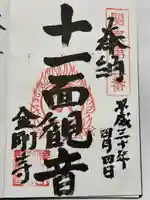 奉納
平成三十年
四月四日
十一面観音
金剛寺